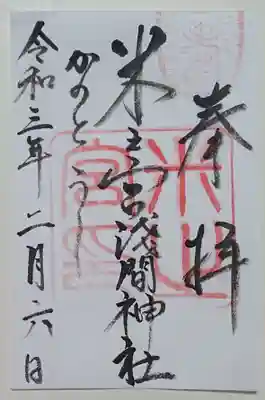 奉拝
米之宮浅間神社
かのとうし
令和三年 二月六日
米之
宮印